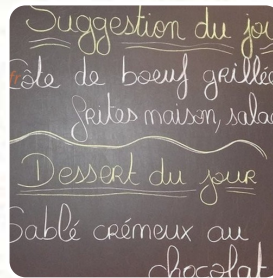 Suggestion du jou
Côte de boeuf grillée
frites maison, salad
Dessert du jour
Sablé crémeux au
chocolat